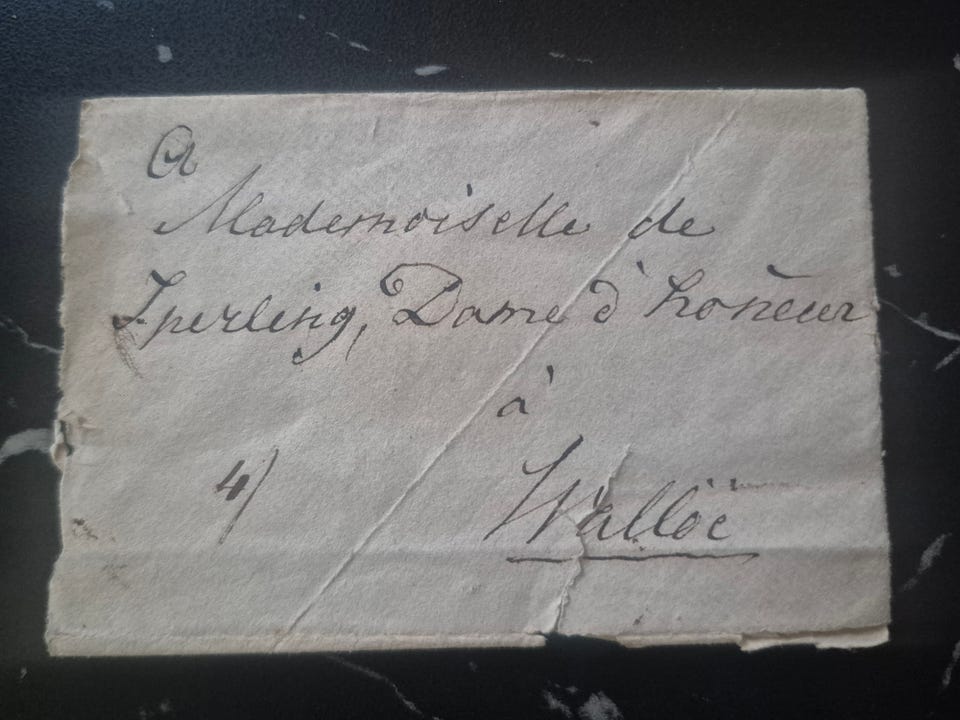 A
Mademoiselle de
Sperling, Dame d'hoñeur
à
Walløe
4/